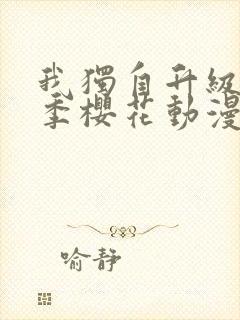 我獨自升級
季櫻花動漫
喻靜